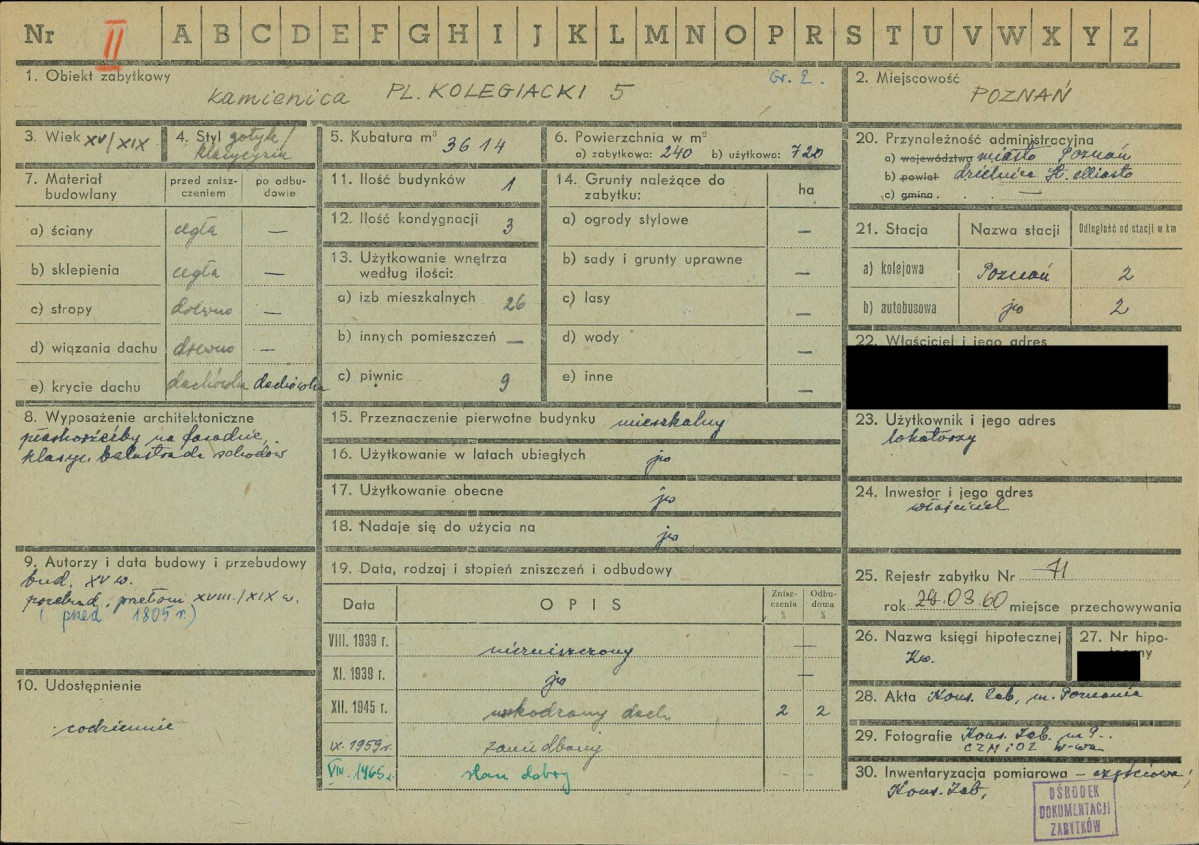 Nr II A B C D E F G H I J K L M N O P R S T U V W X Y Z
1. Obiekt zabytkowy
kamienica PL. KOLEGIACKI 5
Gr. 2.
2. Miejscowość
POZNAŃ
3. Wiek XV/XIX
4. Styl gotyk/
klasycyzm
5. Kubatura m³ 3614
6. Powierzchnia w m²
a) zabytkowa: 240 b) użytkowa: 720
7. Materiał budowlany
przed zniszczeniem
po odbudowie
a) ściany cegła —
b) sklepienia cegła —
c) stropy drewno —
d) wiązania dachu drewno —
e) krycie dachu dachówka dachówka
8. Wyposażenie architektoniczne
płaskorzeźby na fasadzie,
klasyc. balustrada schodów
9. Autorzy i data budowy i przebudowy
bud. XV w.
przebud. przełom XVIII/XIX w.
(przed 1805 r.)
10. Udostępnienie
codziennie
11. Ilość budynków 1
12. Ilość kondygnacji 3
13. Użytkowanie wnętrza
według ilości:
a) izb mieszkalnych 26
b) innych pomieszczeń —
c) piwnic 9
14. Grunty należące do
zabytku:
ha
a) ogrody stylowe —
b) sady i grunty uprawne —
c) lasy —
d) wody —
e) inne —
15. Przeznaczenie pierwotne budynku mieszkalny
16. Użytkowanie w latach ubiegłych jw
17. Użytkowanie obecne jw
18. Nadaje się do użycia na jw
19. Data, rodzaj i stopień zniszczeń i odbudowy
Data OPIS Zniszczenia % Odbudowa %
VIII. 1939 r. niezniszczony —
XI. 1939 r. jw —
XII. 1945 r. uszkodzony dach 2 2
IX. 1959 r. zaniedbany
VIII. 1965 r. stan dobry - -
20. Przynależność administracyjna
a) województwo miasto Poznań
b) powiat dzielnica St. Miasto
c) gmina —
21. Stacja Nazwa stacji Odległość od stacji w km
a) kolejowa Poznań 2
b) autobusowa jw 2
22. Właściciel i jego adres
23. Użytkownik i jego adres
lokatorzy
24. Inwestor i jego adres
właściciel
25. Rejestr zabytku Nr 71
rok 28.03.60 miejsce przechowywania
26. Nazwa księgi hipotecznej
Kw.
27. Nr hipo-
28. Akta Kons. Zab. m. Poznania
29. Fotografie Kons. Zab. m. P.
CZMiOZ W-wa
30. Inwentaryzacja pomiarowa – częściowa;
Kons. Zab.
OŚRODEK
DOKUMENTACJI
ZABYTKÓW